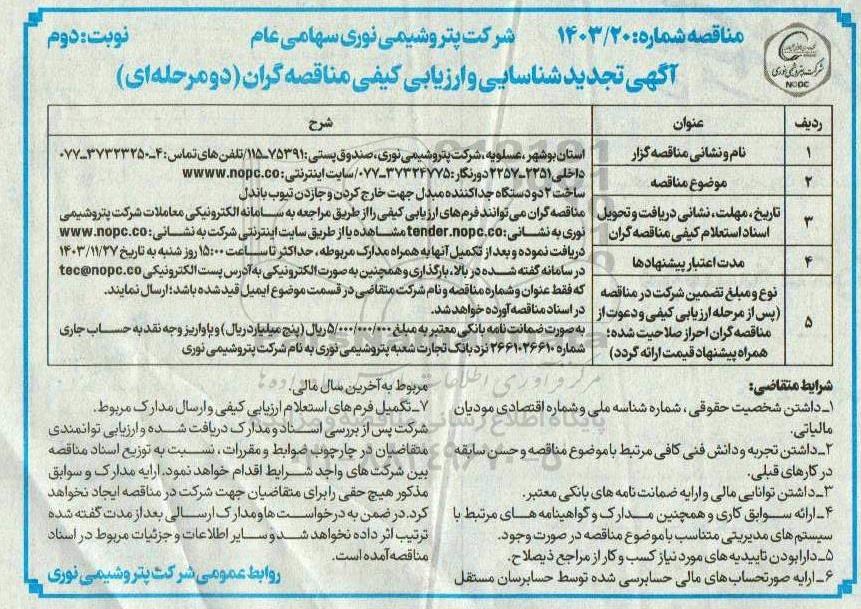 مناقصه شماره: ۱۴۰۳/۲۰ شرکت پتروشیمی نوری سهامی عام نوبت: دوم
آگهی تجدید شناسایی و ارزیابی کیفی مناقصه گران (دو مرحله‌ای)
شرکت پتروشیمی نوری
NOPC
ردیف عنوان شرح
۱ نام و نشانی مناقصه گزار استان بوشهر، عسلویه، شرکت پتروشیمی نوری، صندوق پستی: ۷۵۳۹۱-۱۱۵/ تلفن های تماس: ۴-۰۷۷-۳۷۳۲۳۲۵۰
داخلی ۲۲۵۱-۲۲۵۷ دورنگار: ۳۷۳۲۴۷۷۵-۰۷۷/ سایت اینترنتی: wwww.nopc.co
۲ موضوع مناقصه ساخت ۲ دو دستگاه جداکننده مبدل جهت خارج کردن و جازدن تیوب باندل
۳ تاریخ، مهلت، نشانی دریافت و تحویل
اسناد استعلام کیفی مناقصه گران
مناقصه گران می توانند فرم های ارزیابی کیفی را از طریق مراجعه به سامانه الکترونیکی معاملات شرکت پتروشیمی
نوری به نشانی: tender.nopc.co مشاهده یا از طریق سایت اینترنتی شرکت به نشانی: www.nopc.co
دریافت نموده و بعد از تکمیل آنها به همراه مدارک مربوطه، حداکثر تا ساعت ۱۵:۰۰ روز شنبه به تاریخ ۱۴۰۳/۱۱/۲۷
در سامانه گفته شده در بالا، بارگذاری و همچنین به صورت الکترونیکی به آدرس پست الکترونیکی tec@nopc.co
که فقط عنوان و شماره مناقصه و نام شرکت متقاضی در قسمت موضوع ایمیل قید شده باشد؛ ارسال نمایند.
۴ مدت اعتبار پیشنهادها در اسناد مناقصه آورده خواهد شد.
۵ نوع و مبلغ تضمین شرکت در مناقصه
(پس از مرحله ارزیابی کیفی و دعوت از
مناقصه گران احراز صلاحیت شده؛
همراه پیشنهاد قیمت ارائه گردد)
به صورت ضمانت نامه بانکی معتبر به مبلغ ۵/۰۰۰/۰۰۰/۰۰۰ ریال (پنج میلیارد ریال) و یا واریز وجه نقد به حساب جاری
شماره ۲۶۶۱۰۲۶۶۱۰ نزد بانک تجارت شعبه پتروشیمی نوری به نام شرکت پتروشیمی نوری
شرایط متقاضی:
۱_داشتن شخصیت حقوقی، شماره شناسه ملی و شماره اقتصادی مودیان
مالیاتی.
۲_داشتن تجربه و دانش فنی کافی مرتبط با موضوع مناقصه و حسن سابقه
در کارهای قبلی.
۳_داشتن توانایی مالی و ارایه ضمانت نامه های بانکی معتبر.
۴_ارائه سوابق کاری و همچنین مدارک و گواهینامه های مرتبط با
سیستم های مدیریتی متناسب با موضوع مناقصه در صورت وجود.
۵_دارا بودن تاییدیه های مورد نیاز کسب و کار از مراجع ذیصلاح.
۶_ارایه صورتحساب های مالی حسابرسی شده توسط حسابرسان مستقل
مربوط به آخرین سال مالی.
۷_تکمیل فرم های استعلام ارزیابی کیفی و ارسال مدارک مربوط.
شرکت پس از بررسی اسناد و مدارک دریافت شده و ارزیابی توانمندی
متقاضیان در چارچوب ضوابط و مقررات، نسبت به توزیع اسناد مناقصه
بین شرکت های واجد شرایط اقدام خواهد نمود. ارایه مدارک و سوابق
مذکور هیچ حقی را برای متقاضیان جهت شرکت در مناقصه ایجاد نخواهد
کرد. در ضمن به درخواست ها و مدارک ارسالی بعد از مدت گفته شده
ترتیب اثر داده نخواهد شد و سایر اطلاعات و جزئیات مربوط در اسناد
مناقصه آمده است.
روابط عمومی شرکت پتروشیمی نوری